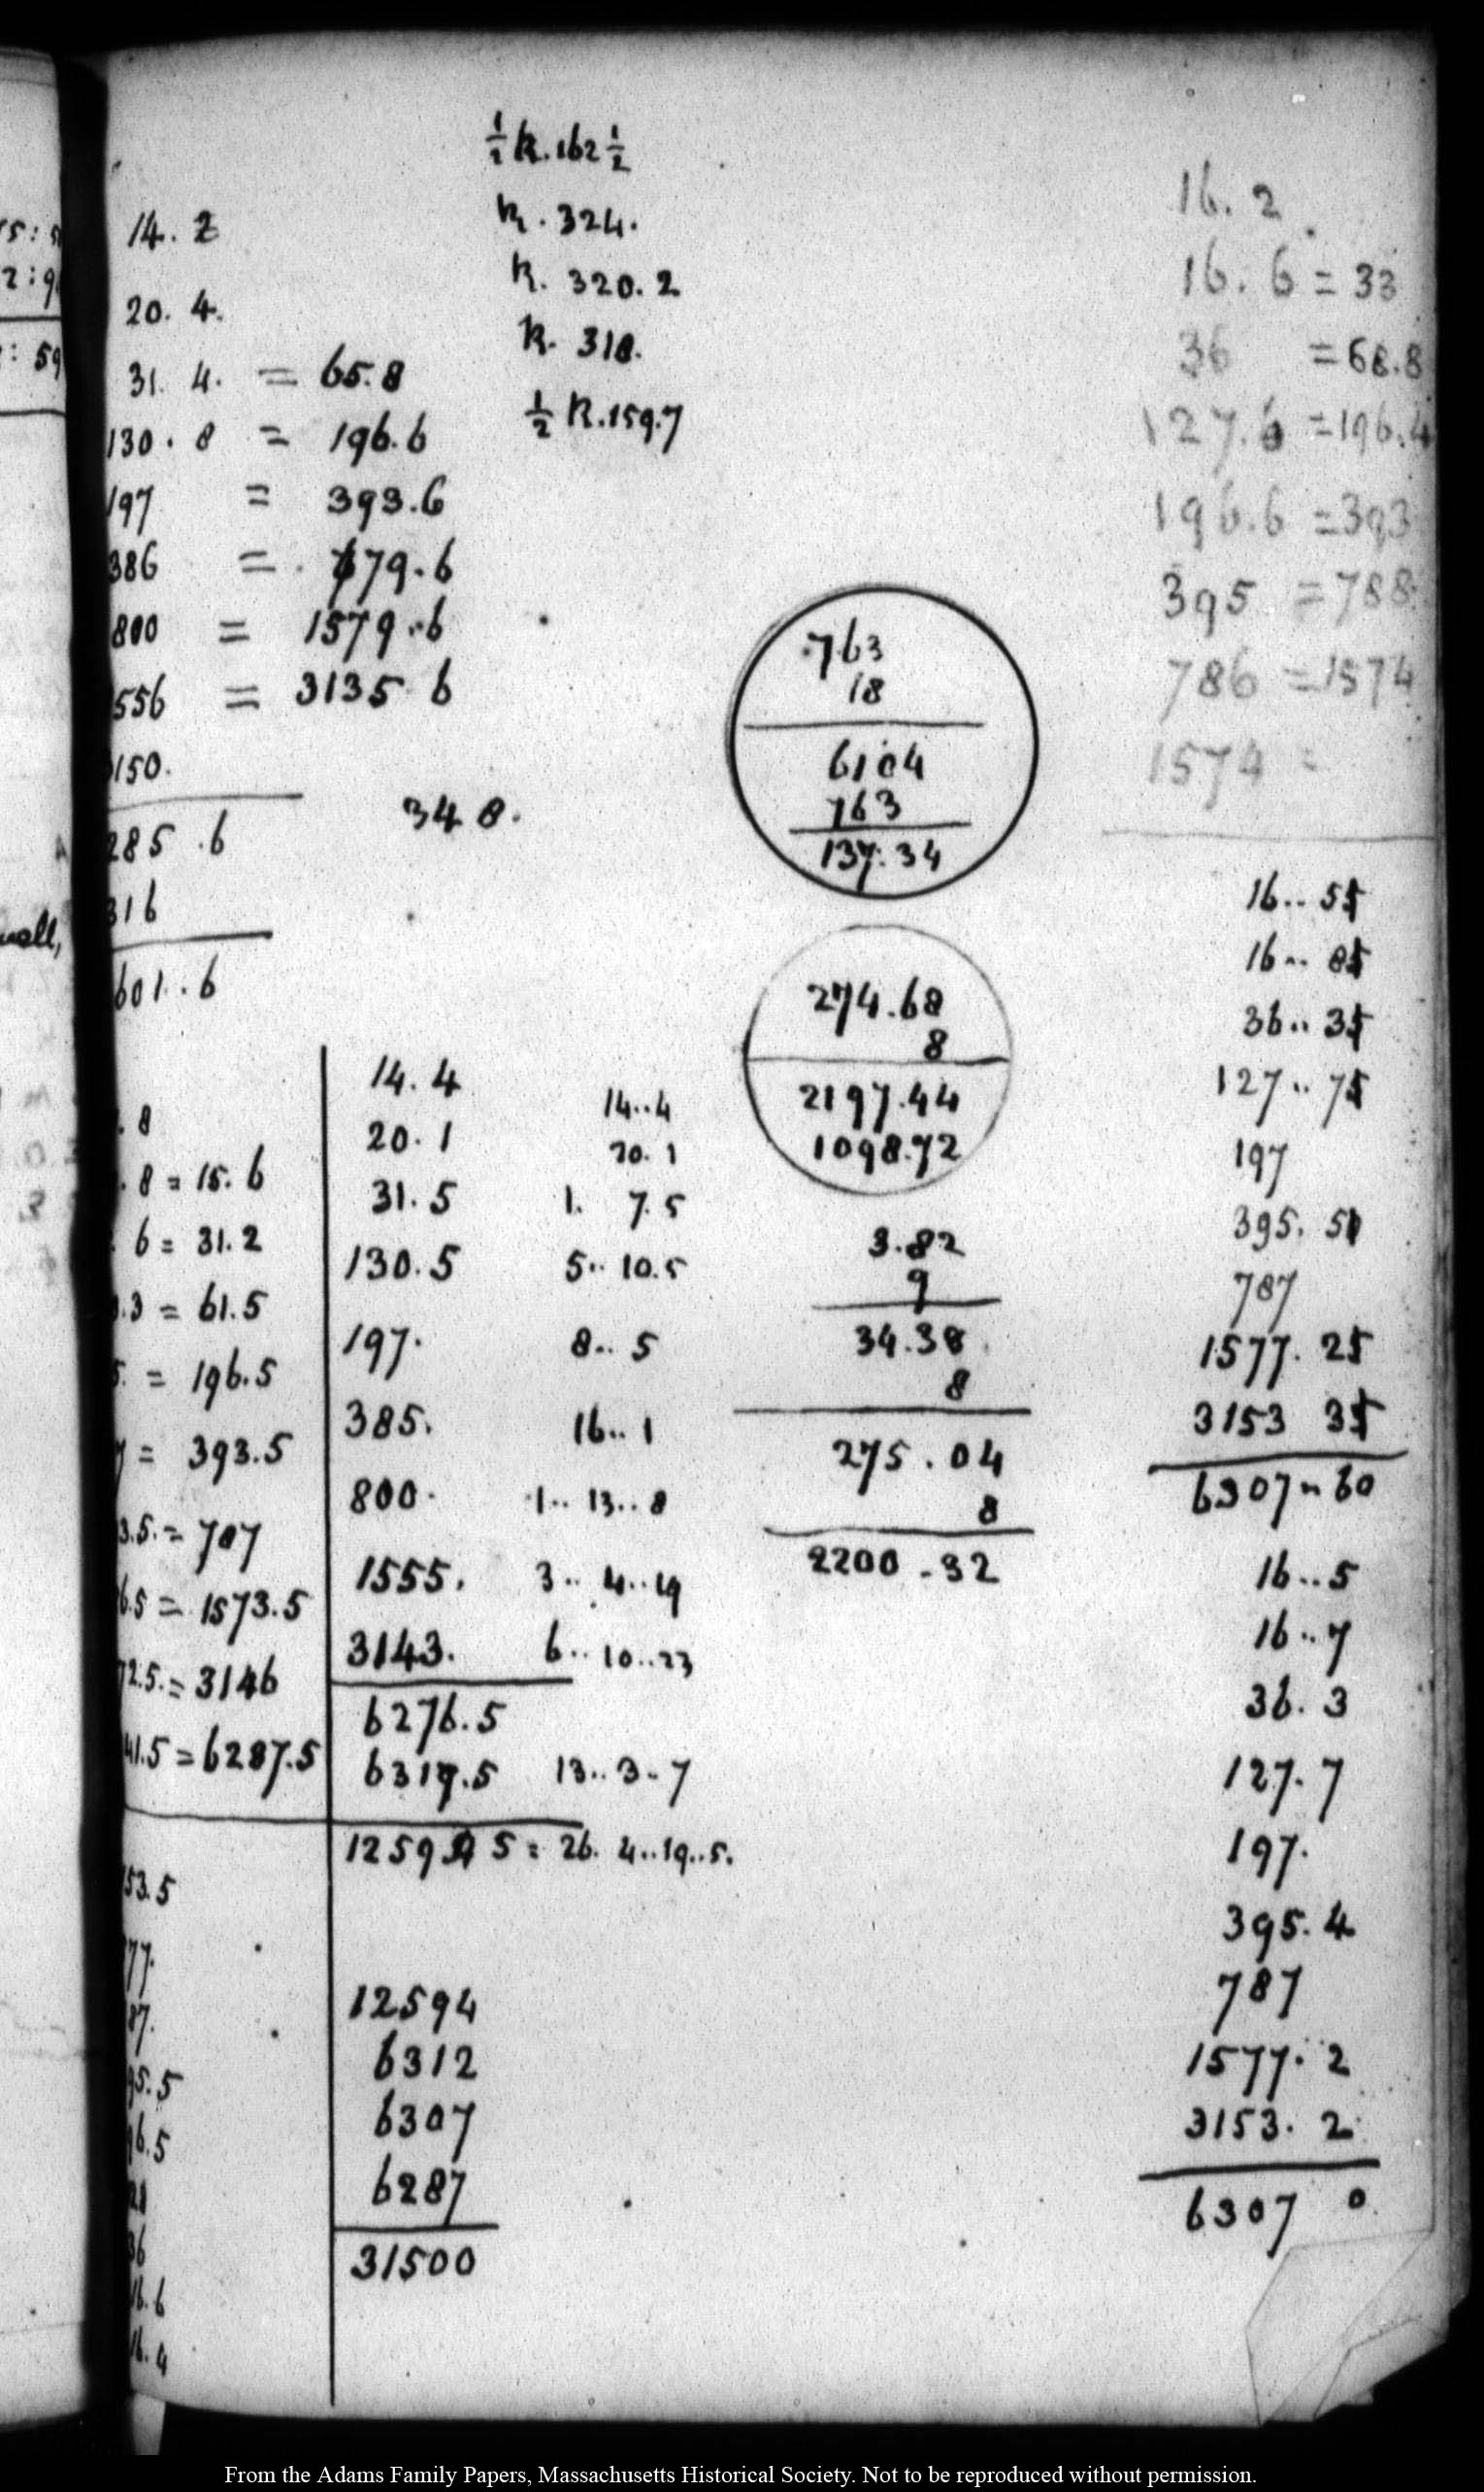 ½ K. 162 ½
K. 324.
K. 320. 2
K. 318.
½ K. 159.7
14. 2
20. 4.
31. 4. = 65.8
130. 8 = 196.6
197 = 393.6
386 = 779.6
800 = 1579.6
556 = 3135 6
150.
285 .6
316
601..6
348.
. 8
. 8 = 15. 6
6 = 31.2
.3 = 61.5
5. = 196.5
7 = 393.5
3.5. = 787
6.5 = 1573.5
72.5. = 3146
41.5 = 6287.5
53.5
77.
87.
95.5
96.5
36
16.6
16.4
14. 4
20. 1
31. 5
130. 5
197.
385.
800.
1555.
3143.
6276.5
6317.5 13..3-7
12594 5 = 26. 4..19..5.
12594
6312
6307
6287
31500
14..4
20. 1
1. 7.5
5.. 10.5
8.. 5
16.. 1
1.. 13.. 8
3.. 4..19
6.. 10..23
.763
18
6104
763
137.34
274.68
8
2197.44
1098.72
3.82
9
34.38
8
275.04
8
2200.32
16. 2
16. 6 = 33
36 = 68.8
127.6 = 196.4
196.6 = 393
395 = 788
786 = 1574
1574 =
16.. 55
16.. 85
36.. 35
127.. 75
197
395. 50
787
1577. 25
3153 35
6307.. 60
16..5
16..7
36. 3
127. 7
197.
395. 4
787
1577. 2
3153. 2
6307 0
From the Adams Family Papers, Massachusetts Historical Society. Not to be reproduced without permission.